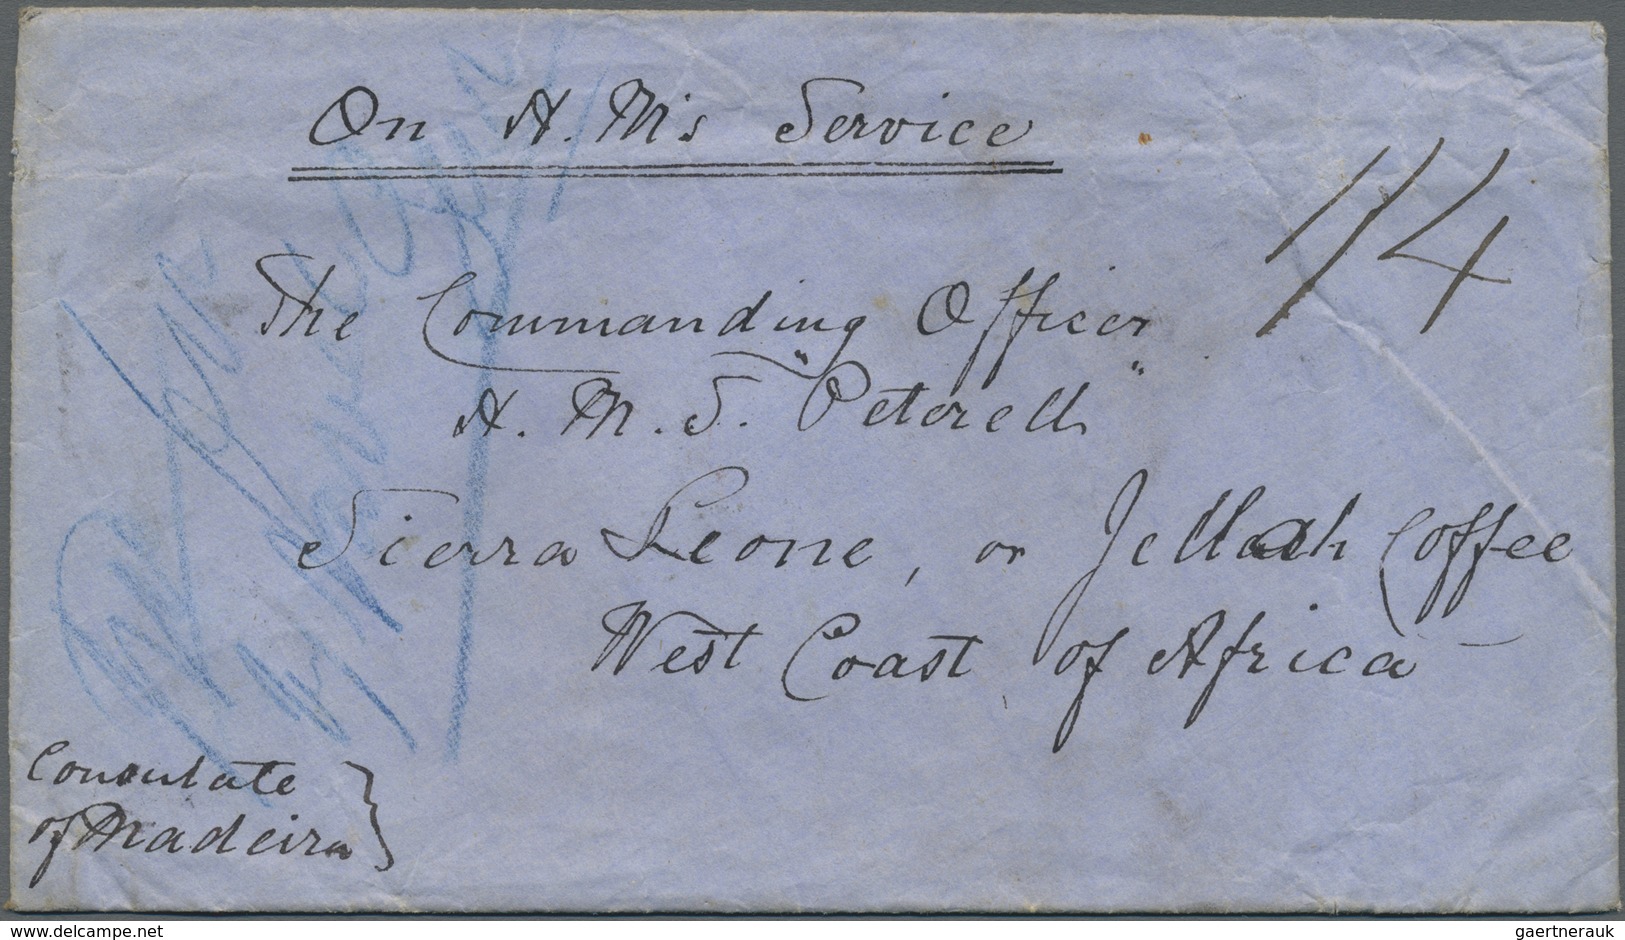 On H. M's Service
1/4
The Commanding Officer
H. M. S. "Peterell"
Sierra Leone, or Jellah Coffee
West Coast of Africa
Consulate
of Madeira
www.delcampe.net
gaertnerauk